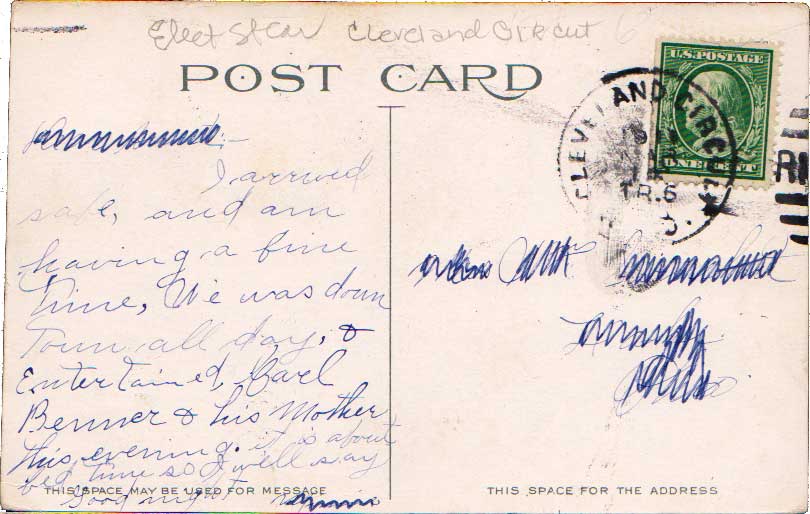 Elect St Car Cleveland Circuit 6
POST CARD
U.S. POSTAGE
ONE CENT
CLEVELAND CIRCUIT
TR.6
R.P.O.
I arrived
safe, and am
having a fine
time, We was down
Town all day, &
Entertained, Carl
Benner & his Mother
this evening. it is about
bed time so I will say
good night
THIS SPACE MAY BE USED FOR MESSAGE
THIS SPACE FOR THE ADDRESS